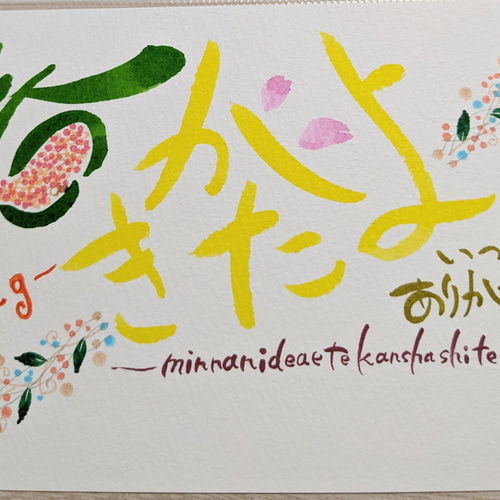 春が
きたよ
g~
いつ
ありが
—minnanideaete kanshashite